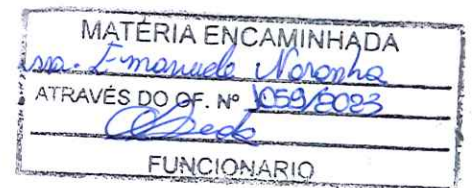 MATÉRIA ENCAMINHADA
Emanuele Noronha
ATRAVÉS DO OF. Nº 1059/2023
FUNCIONARIO